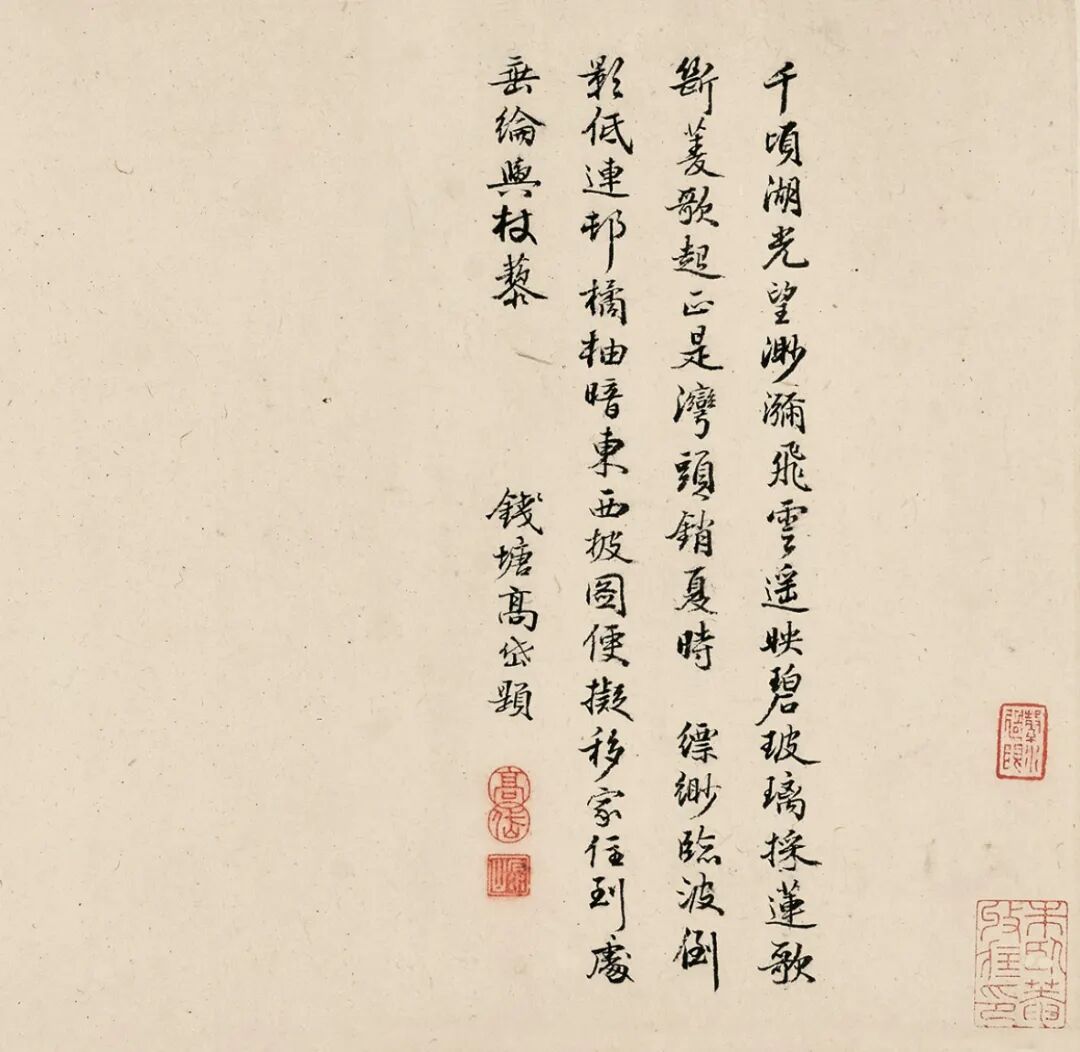 千頃湖光望渺瀰飛雲遥映碧玻璃採蓮歌
斷菱歌起正是灣頭銷夏時　縹緲臨波倒
影低連邨橘柚暗東西披圖便擬移家住到處
垂綸與杖藜
錢塘高岱題
高岱